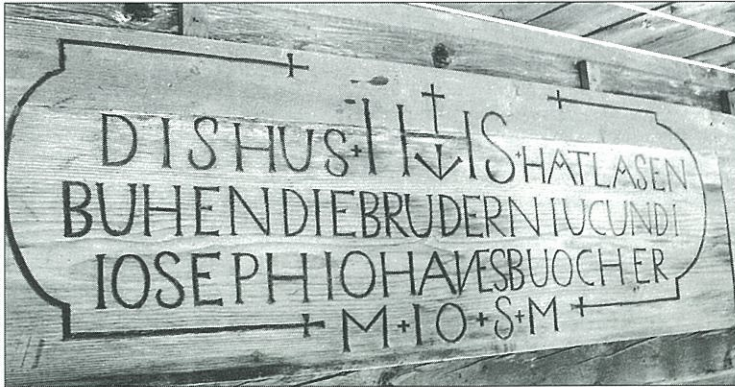 DISHUS + IHS + HATLASEN
BUHENDIEBRUDERNIUCUNDI
IOSEPHIOHANESBUOCHER
M + IO + S + M